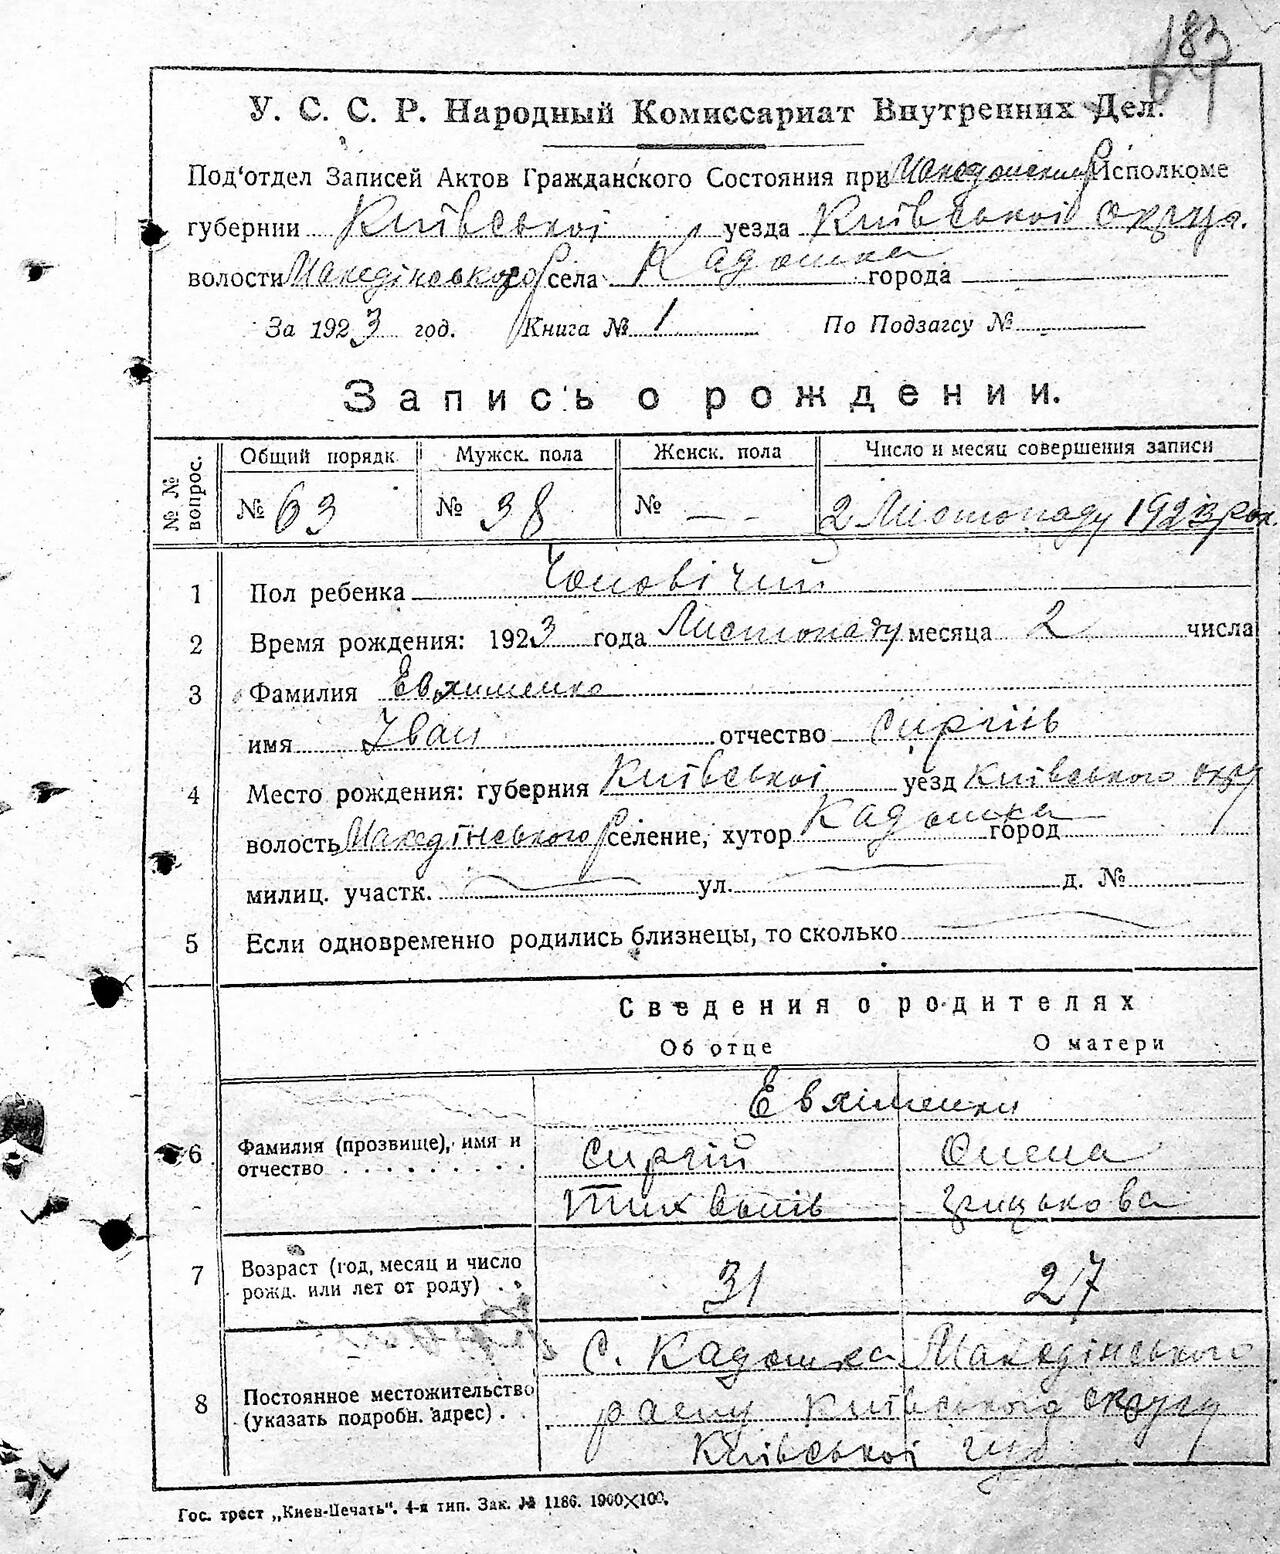 183
У. С. С. Р. Народный Комиссариат Внутренних Дел.
Под'отдел Записей Актов Гражданского Состояния при Исполкоме
губернии Київської уезда Київської округа.
волости Македінського р села Кадомка города
За 1923 год. Книга № 1 По Подзагсу №
Запись о рождении.
№ № вопрос. Общий порядк. Мужск. пола Женск. пола Число и месяц совершения записи
№ 63 № 38 № — - 2 Листопаду 1923 рок.
1 Пол ребенка Чоловічий
2 Время рождения: 1923 года Листопаду месяца 2 числа
3 Фамилия Евхименко
имя Іван отчество Сиргіїв
4 Место рождения: губерния Київської уезд Київського окру
волость Македінського р селение, хутор Кадомка город
милиц. участк. ул. д. №
5 Если одновременно родились близнецы, то сколько
Сведения о родителях
Об отце О матери
Евхіменки
6 Фамилия (прозвище), имя и Сиргій Олена
отчество Грицькова
7 Возраст (год, месяц и число 31 27
рожд. или лет от роду)
С. Кадомка Македінського
8 Постоянное местожительство Київського округу
(указать подробн. адрес) Київської губ
Гос. трест „Киев-Печать“. 4-я тип. Зак. № 1186. 1900×100.